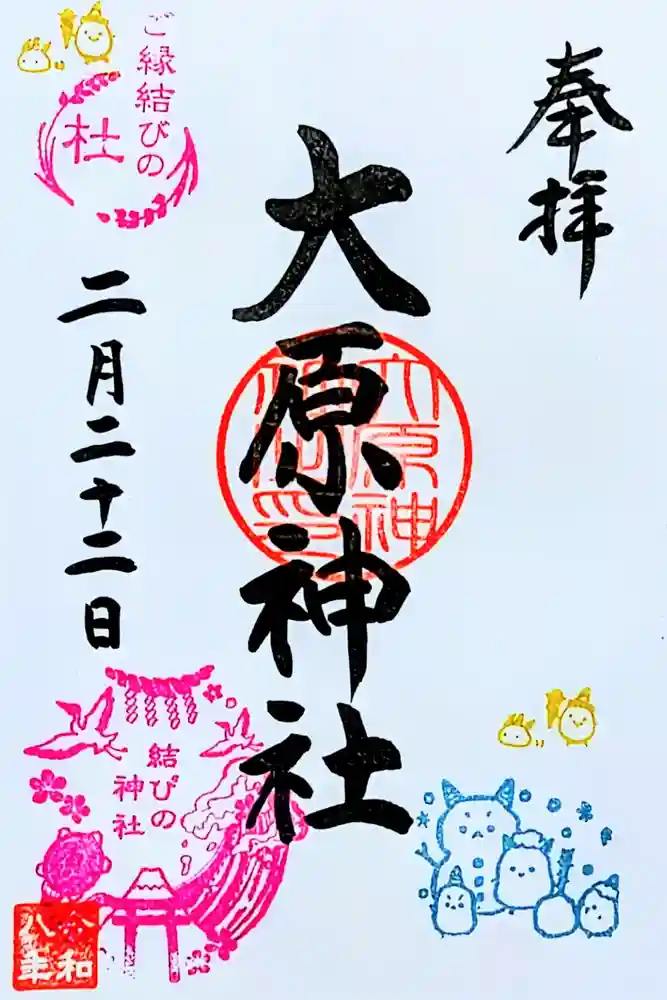 奉拝
大原神社
大原神
社
ご縁結びの
杜
二月二十二日
結びの
神社
令和
八年